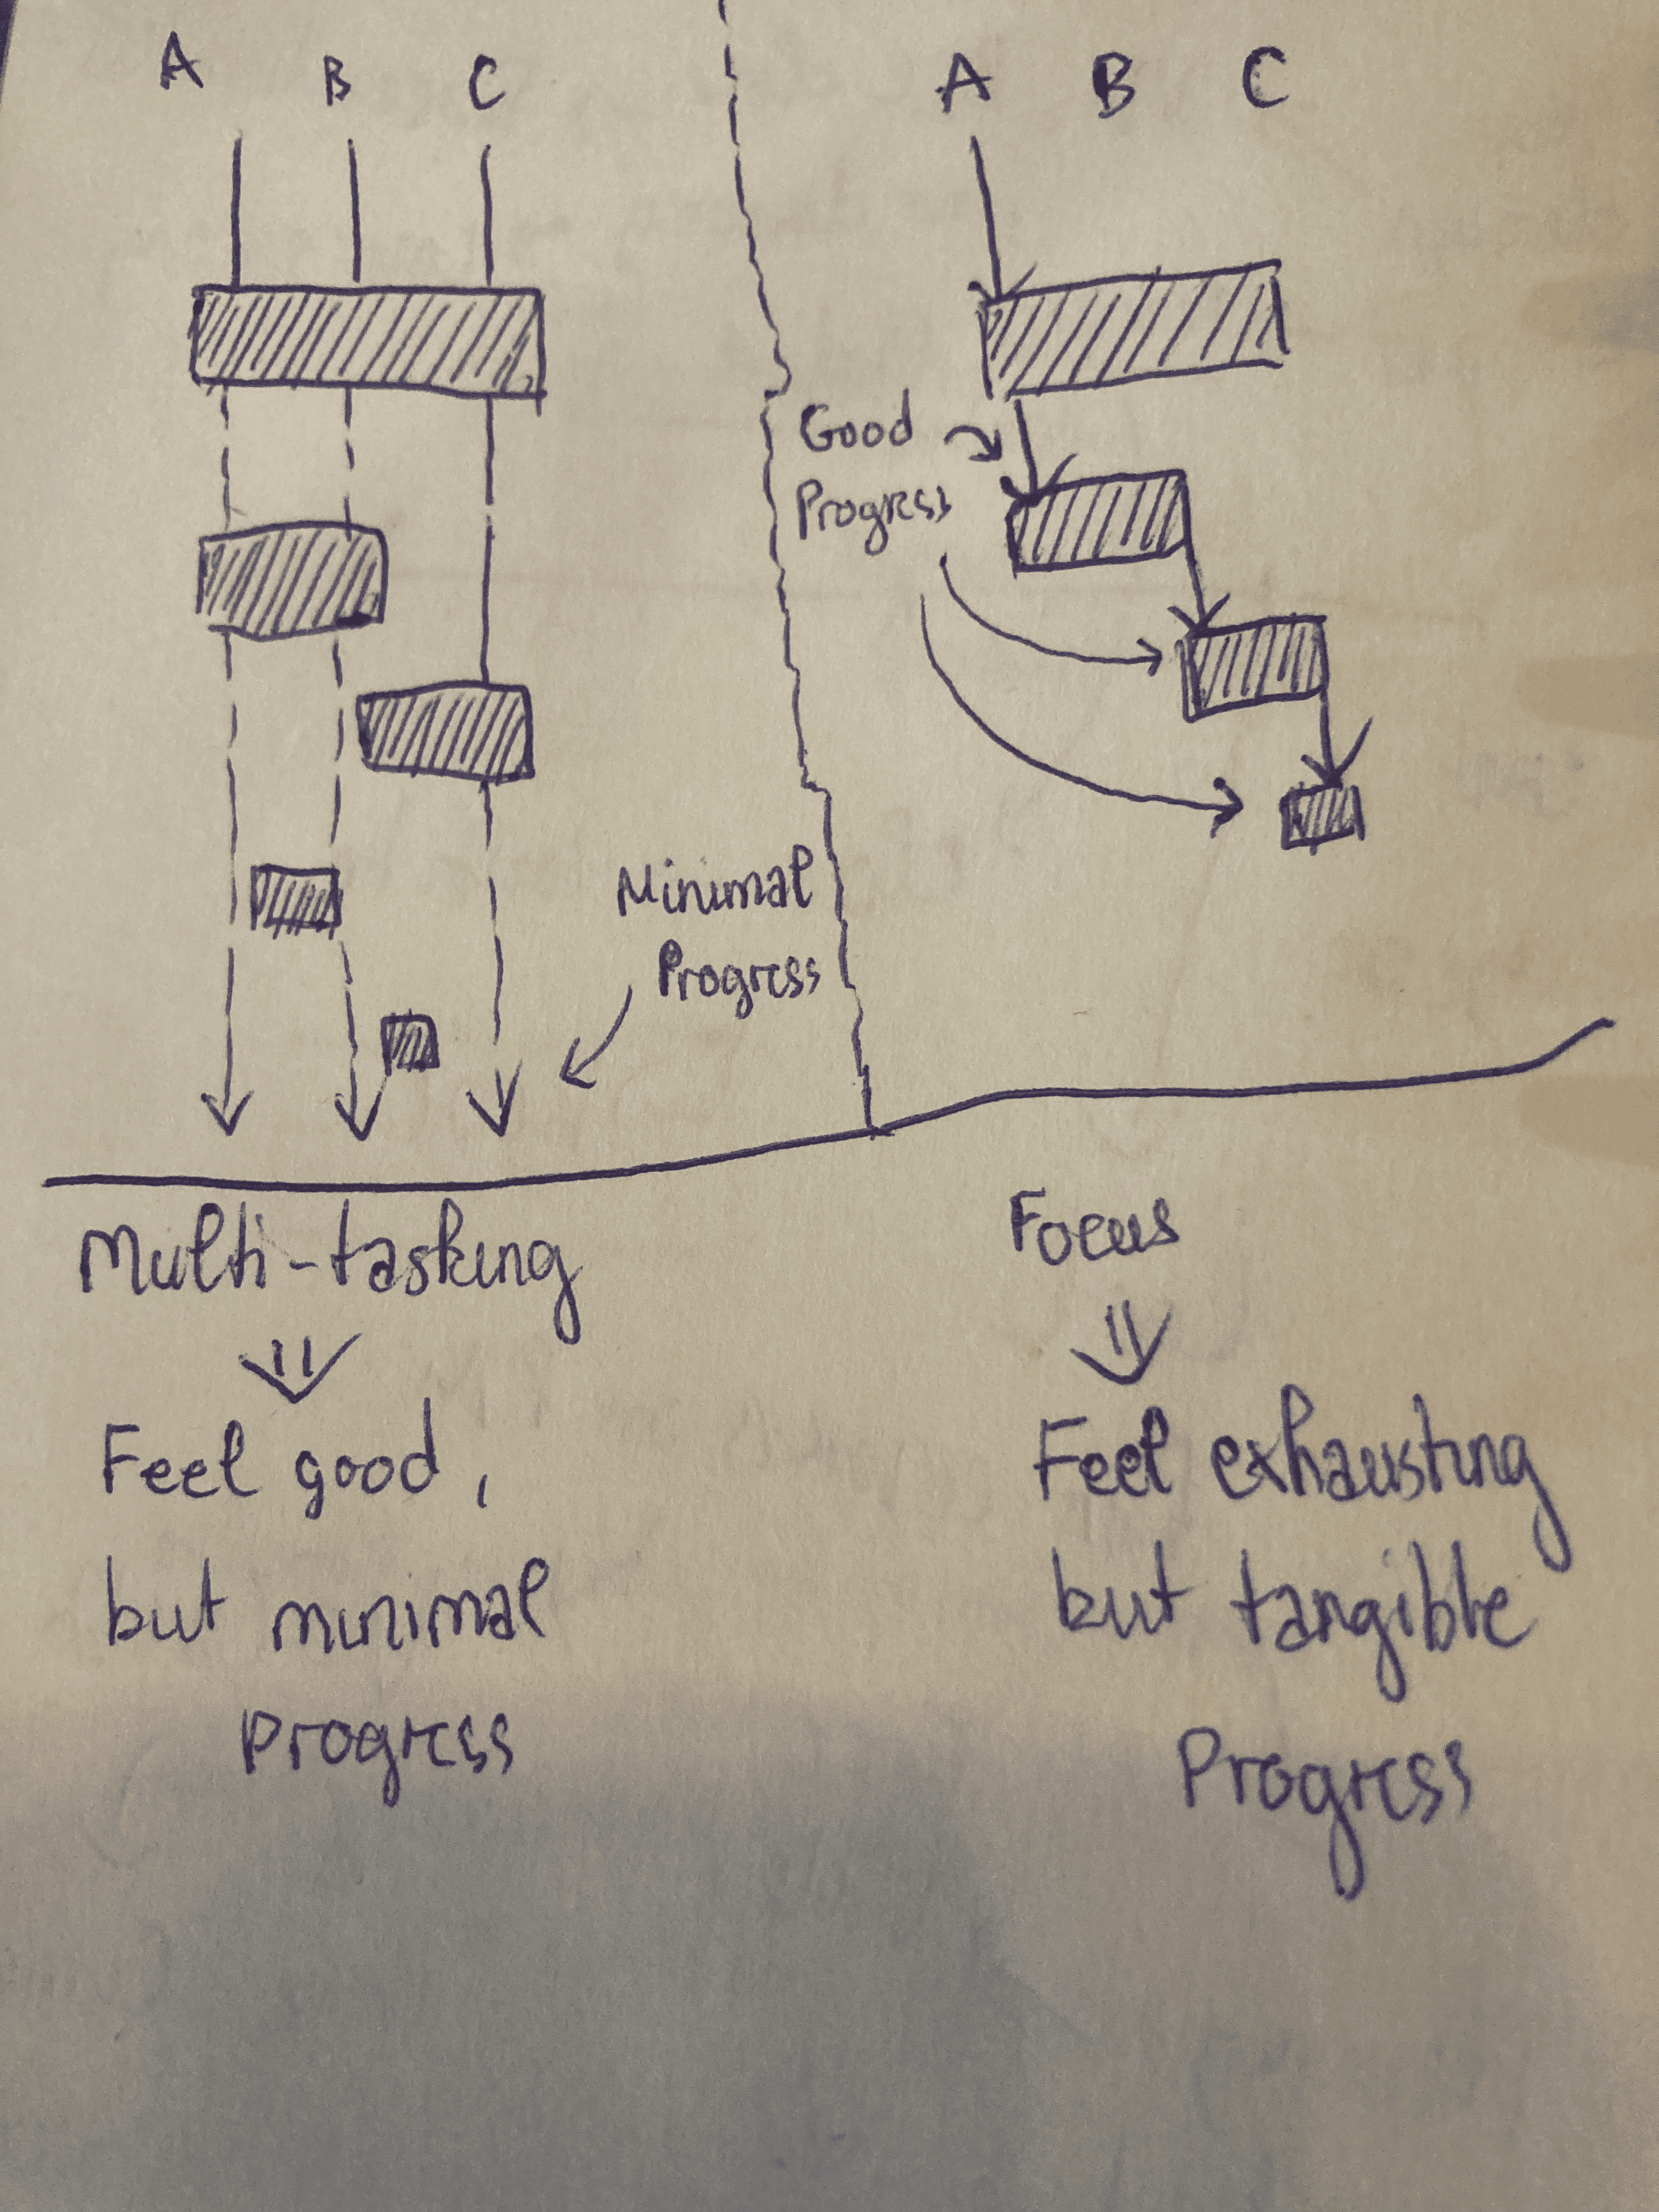 A B C
Minimal
Progress
A B C
Good
Progress
Multi-tasking
Feel good,
but minimal
Progress
Focus
Feel exhausting
but tangible
Progress